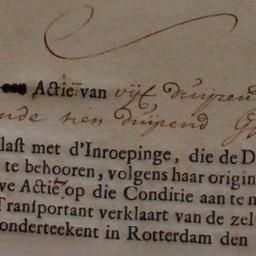 Actie van vijf duijzend
ende tien duijzend
last met d'Inroepinge, die de D
te behooren, volgens haar origin
ve Actie op die Conditie aan te n
Transportant verklaart van de zel
onderteekent in Rotterdam den